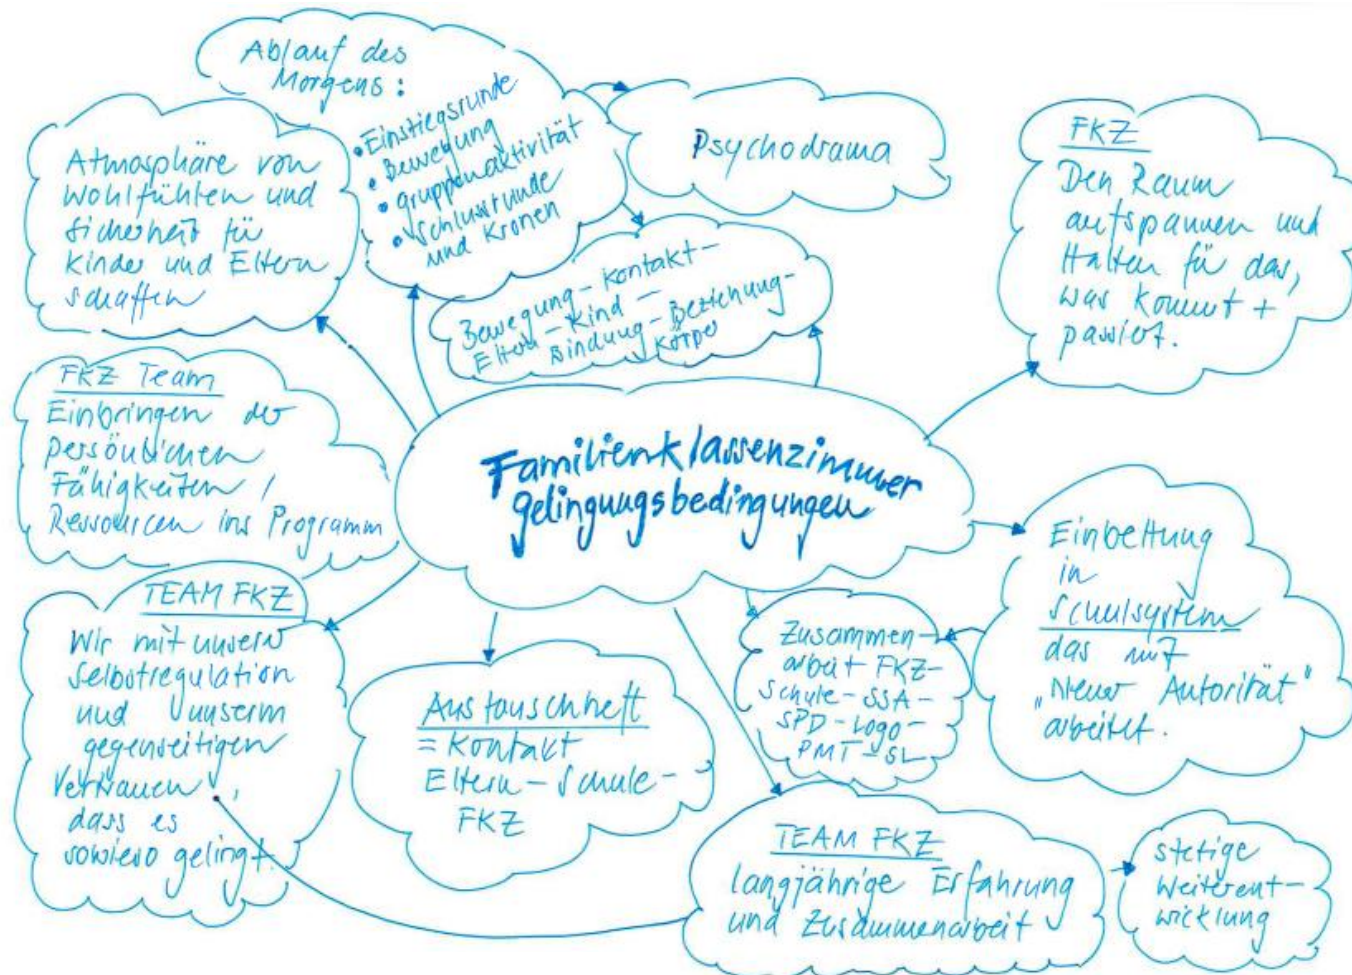 Ablauf des
Morgens:
• Einstiegsrunde
• Bewegung
• gruppenaktivität
• Schlussrunde
und Kronen
Psychodrama
FKZ
Den Raum
aufspannen und
Halten für das,
was kommt +
passiert.
Atmosphäre von
wohlfühlen und
Sicherheit für
Kinder und Eltern
schaffen
Bewegung – Kontakt –
Eltern – Kind –
Bindung – Beziehung –
Körper
FKZ Team
Einbringen der
persönlichen
Fähigkeiten /
Ressourcen ins Programm
Familienklassenzimmer
gelingungsbedingungen
Einbettung
in
Schulsystem
das mit
"Neuer Autorität"
arbeitet.
TEAM FKZ
Wir mit unsern
selbstregulation
und unserm
gegenseitigen
Vertrauen,
dass es
sowieso gelingt.
Austauschheft
= Kontakt
Eltern – Schule –
FKZ
Zusammen-
arbeit FKZ –
Schule – SSA –
SPD – Logo –
PMT – SL
TEAM FKZ
langjährige Erfahrung
und Zusammenarbeit
stetige
Weiterent-
wicklung